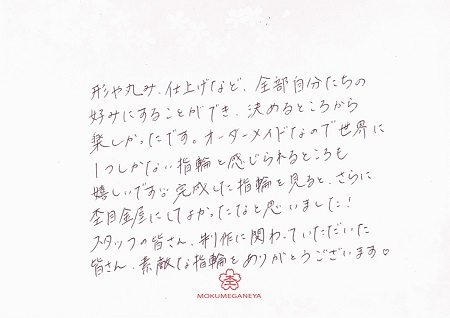 形や丸み、仕上げなど、全部自分たちの
好みにすることができ、決めるところから
楽しかったです。オーダーメイドなので世界に
1つしかない指輪と感じられるところも
嬉しいです。完成した指輪を見ると、さらに
杢目金屋にしてよかったなと思いました!
スタッフの皆さん、制作に関わっていただいた
皆さん、素敵な指輪をありがとうございます♡
MOKUMEGANEYA